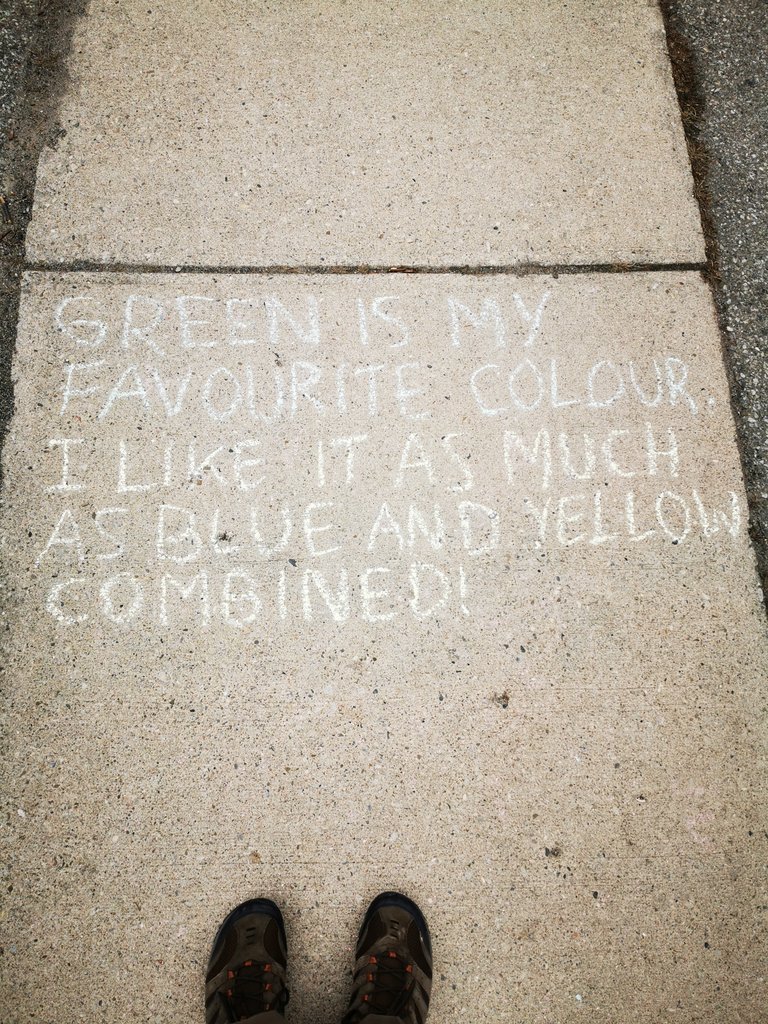 GREEN IS MY
FAVOURITE COLOUR.
I LIKE IT AS MUCH
AS BLUE AND YELLOW
COMBINED!